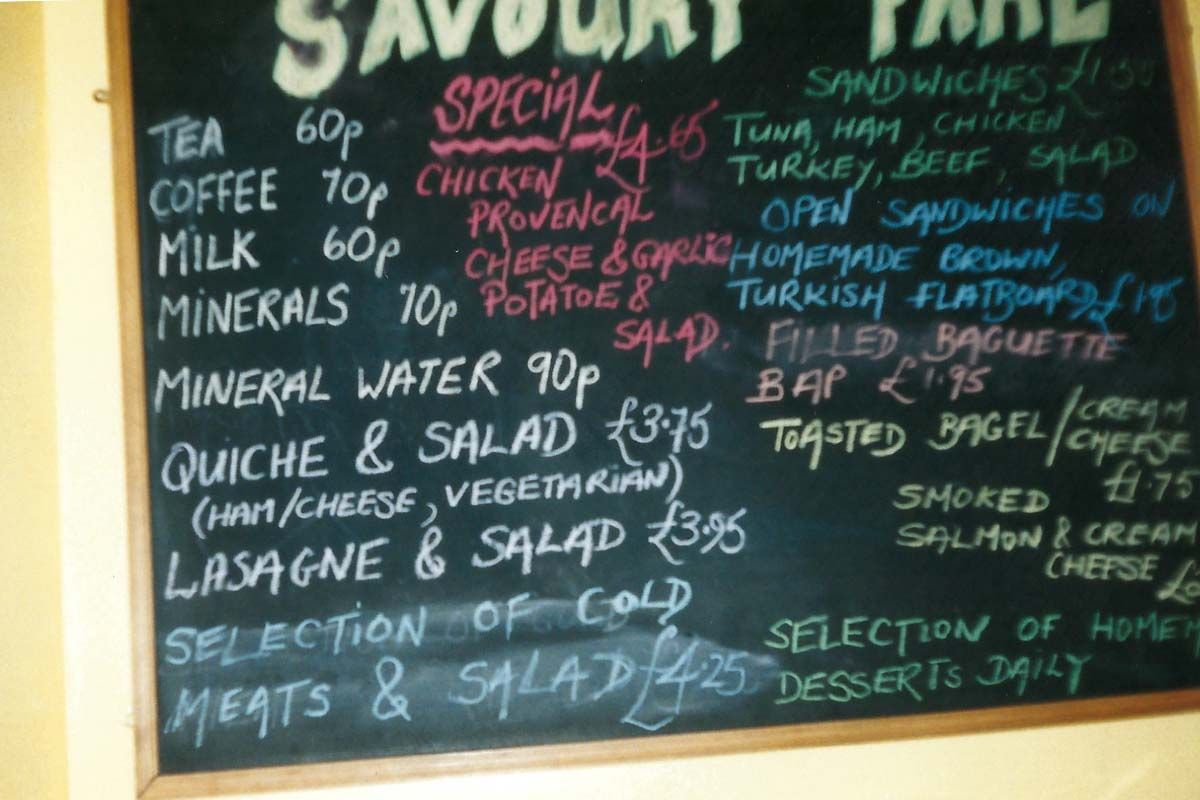 SAVOURY FARE
TEA 60p
COFFEE 70p
MILK 60p
MINERALS 70p
MINERAL WATER 90p
QUICHE & SALAD £3.75
(HAM/CHEESE, VEGETARIAN)
LASAGNE & SALAD £3.95
SELECTION OF COLD
MEATS & SALAD £4.25
SPECIAL
£4.65
CHICKEN
PROVENCAL
CHEESE & GARLIC
POTATOE &
SALAD.
SANDWICHES
TUNA, HAM, CHICKEN
TURKEY, BEEF, SALAD
OPEN SANDWICHES ON
HOMEMADE BROWN,
TURKISH FLATBOARD
FILLED BAGUETTE
BAP £1.95
TOASTED BAGEL/CREAM
CHEESE
£1.75
SMOKED
SALMON & CREAM
CHEESE
SELECTION OF
DESSERTS DAILY